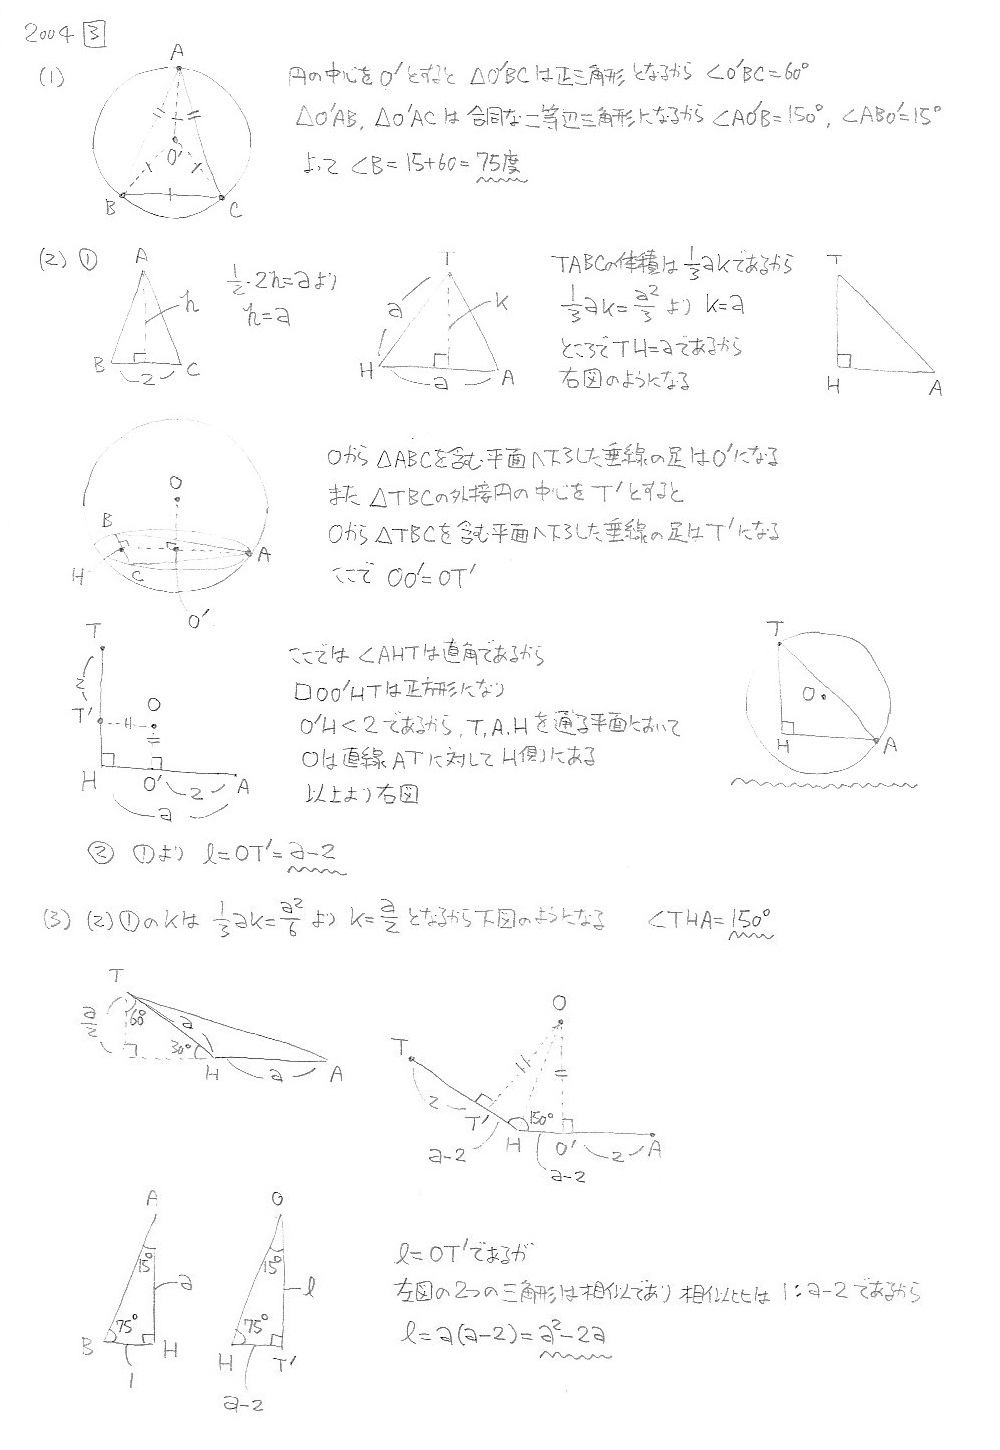 2004 3
(1)
A
O'
B
C
円の中心をO'とすると △O'BCは正三角形となるから ∠O'BC=60°
△O'AB, △O'ACは合同な二等辺三角形になるから ∠AO'B=150°, ∠ABO'=15°
よって ∠B=15+60=75度
(2) ①
A
h
B 2 C
1/2・2h=aより
h=a
T
a
k
H a A
TABCの体積は1/3akであるから
1/3ak=a²/3より k=a
ところでTH=aであるから
右図のようになる
T
H A
O
B
H C A
O'
Oから△ABCを含む平面へ下ろした垂線の足はO'になる
また△TBCの外接円の中心をT'とすると
Oから△TBCを含む平面へ下ろした垂線の足はT'になる
ここで OO'=OT'
T
2
T' O
H O' 2 A
a
ここでは∠AHTは直角であるから
□OO'HTは正方形になり
O'H<2であるから、T,A,Hを通る平面において
Oは直線ATに対してH側にある
以上より右図
T
O
H A
② ①より l=OT'=a-2
(3) (2)①のkは 1/3ak=a²/6より k=a/2となるから下図のようになる ∠THA=150°
T
a/2 60° a
30°
H a A
O
T
2
T' 150°
a-2 H O' 2 A
a-2
A
15°
a
75°
B H
1
O
15°
l
75°
H T'
a-2
l=OT'であるが
左図の2つの三角形は相似であり 相似比は1:a-2であるから
l=a(a-2)=a²-2a